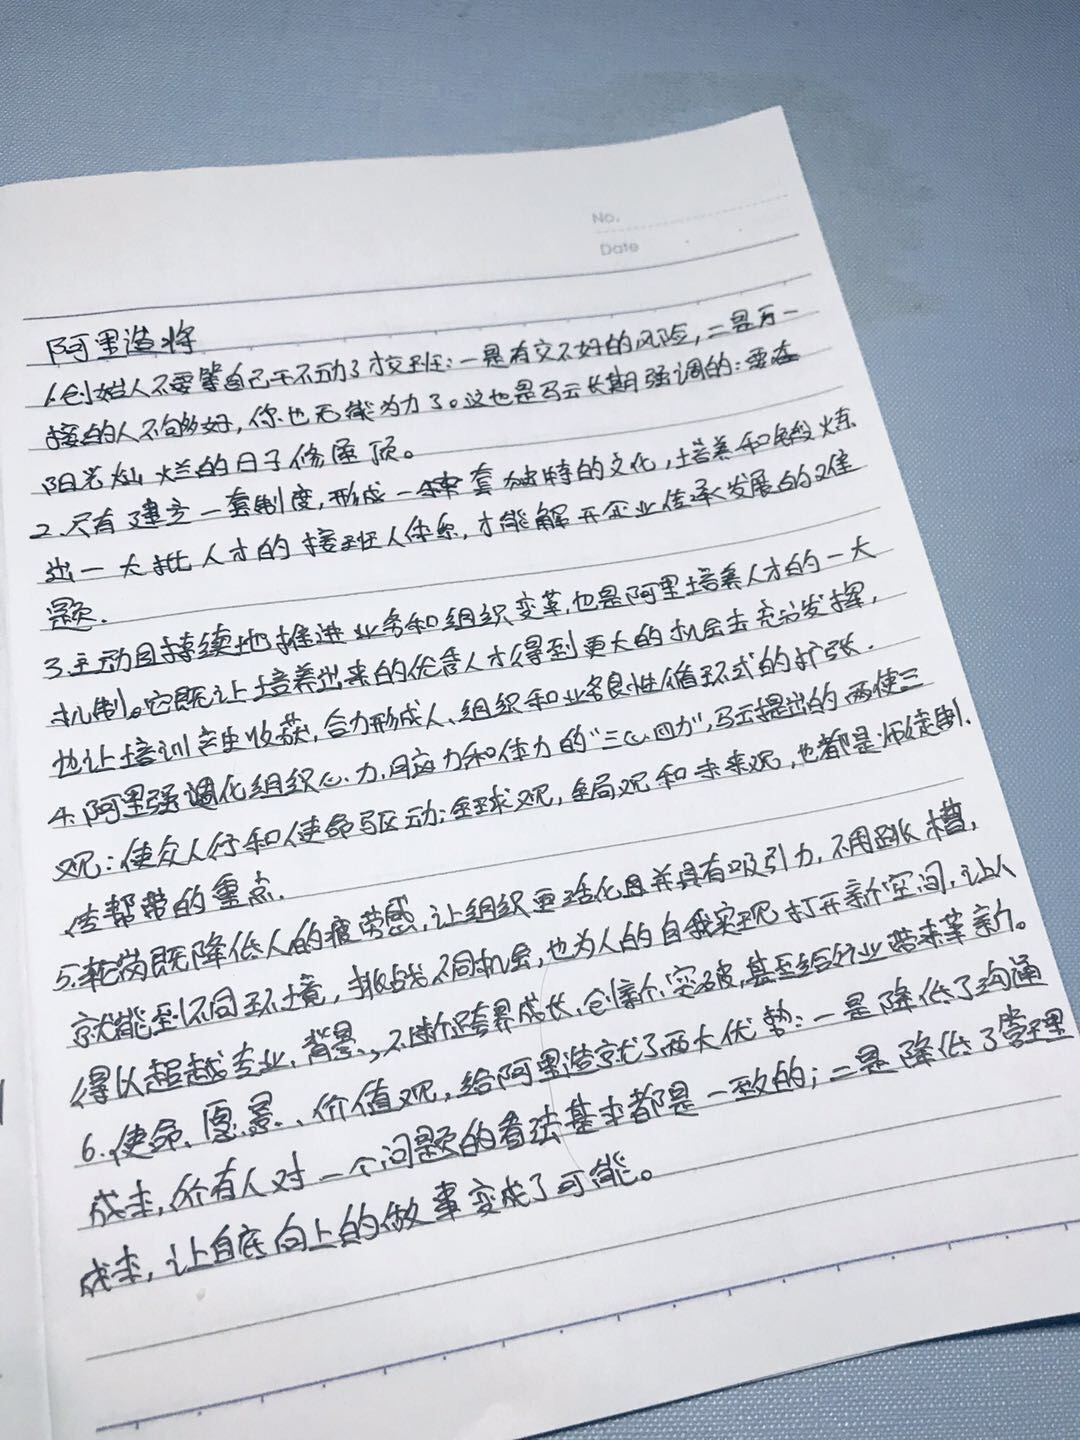 No.
Date
阿里造将
1.创始人不要等自己干不动了才交班:一是有交不好的风险,二是万一
接的人不够好,你也无能为力了。这也是马云长期强调的:要在
阳光灿烂的日子修屋顶。
2.只有建立一套制度,形成一套独特的文化,培养和锻炼
出一大批人才的接班人体系,才能解开企业传承发展的难
题.
3.主动且持续地推进业务和组织变革,也是阿里培养人才的一大
机制。它既让培养出来的优秀人才得到更大的机会去充分发挥,
也让培训产生收获,合力形成人、组织和业务良性循环式的扩张.
4.阿里强调化组织心力,脑力和体力的“三心四力”,马云提出的两使三
观:使众人行和使命驱动;全球观,全局观和未来观,也都是师徒制.
传帮带的重点.
5.轮岗既降低人的疲劳感,让组织更活化且并具有吸引力,不用跳槽,
就能到不同环境,挑战不同机会,也为人的自我实现打开新空间,让人
得以超越专业、背景,不断跨界成长,创新、突破,甚至给行业带来革新。
6.使命、愿景、价值观,给阿里造就了两大优势:一是降低了沟通
成本,所有人对一个问题的看法基本都是一致的;二是降低了管理
成本,让自底向上的做事变成了可能。